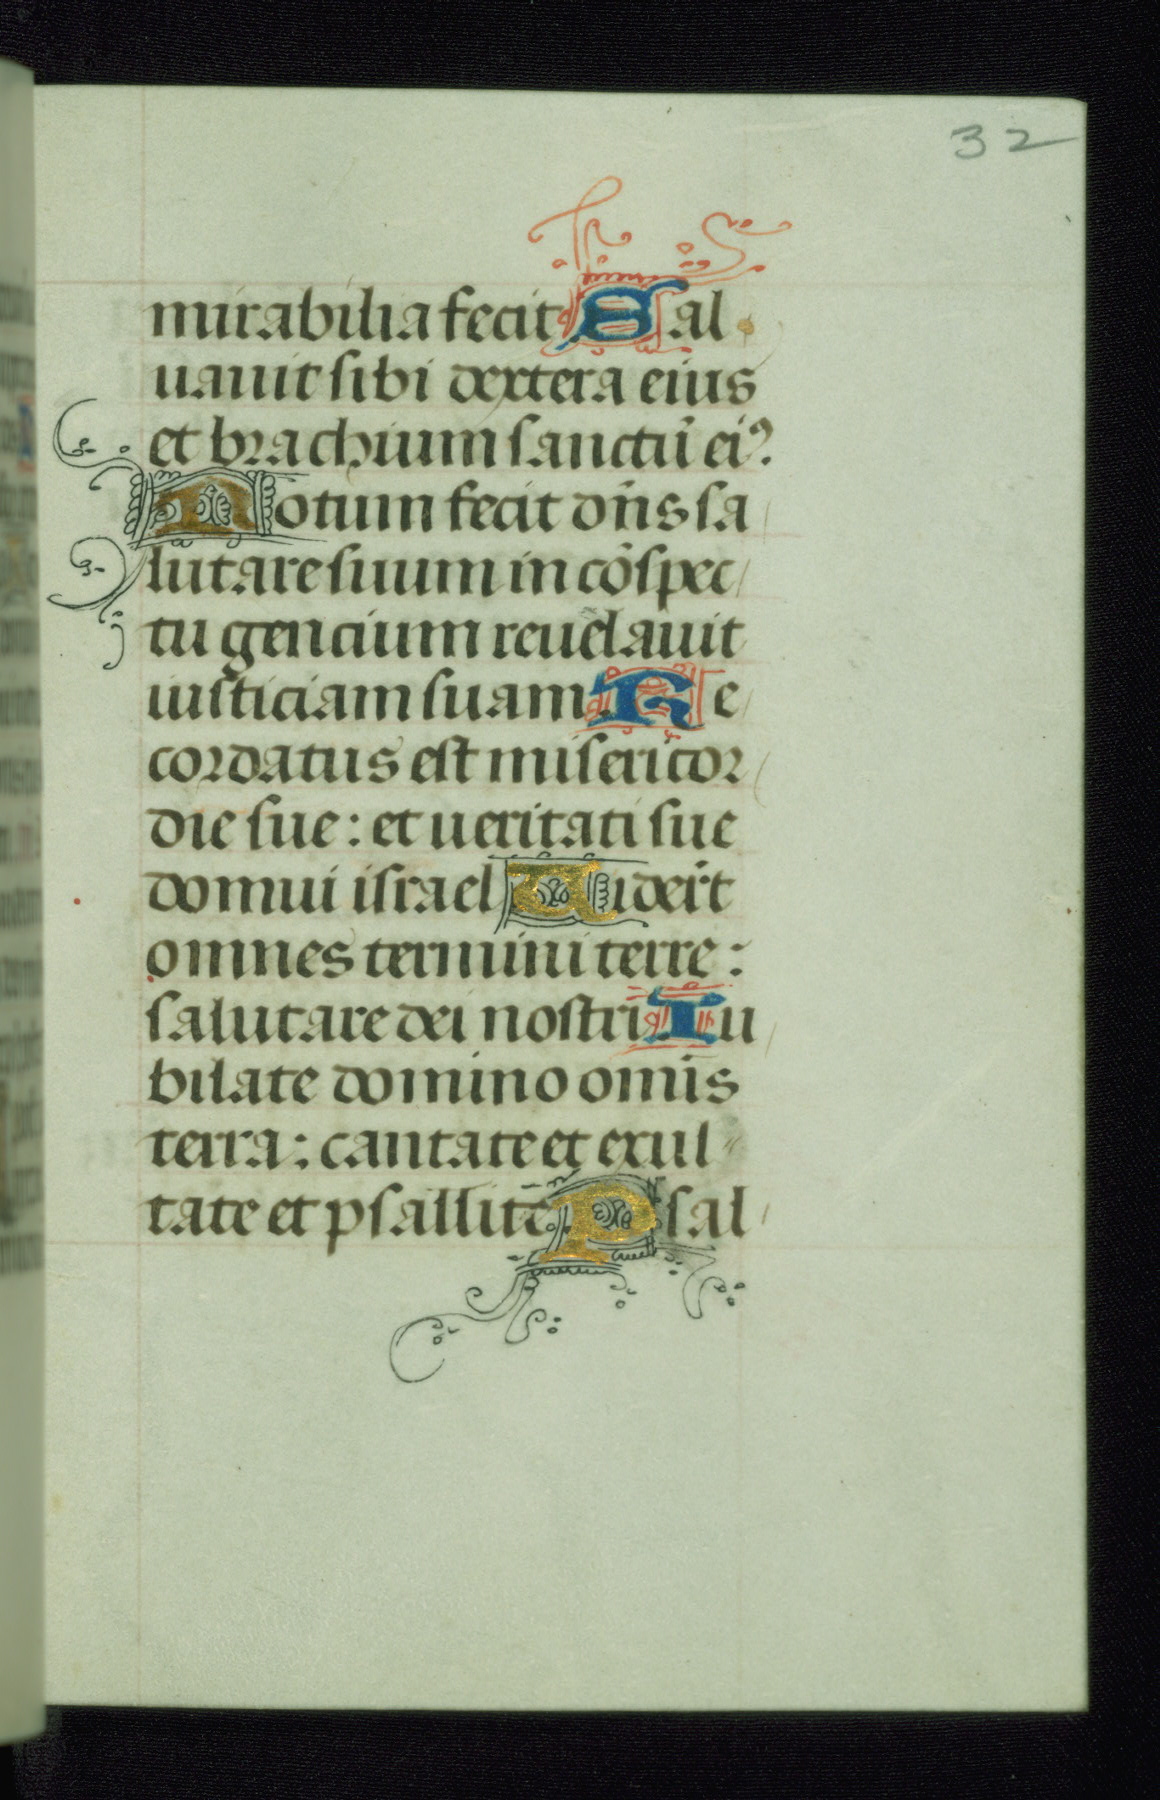 32
mirabilia fecit Sal
uauit sibi dextera eius
et brachium sanctū eiꝰ.
Notum fecit dn̄s sa
lutare suum in cōspec
tu gencium reuelauit
iusticiam suam Re
cordatus est misericor
die sue : et ueritati sue
domui israel Uider̄t
omnes termini terre :
salutare dei nostri Iu
bilate domino omīs
terra : cantate et exul
tate et psallite Psal